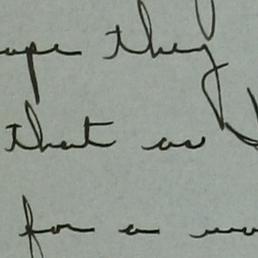 they
that as
for a